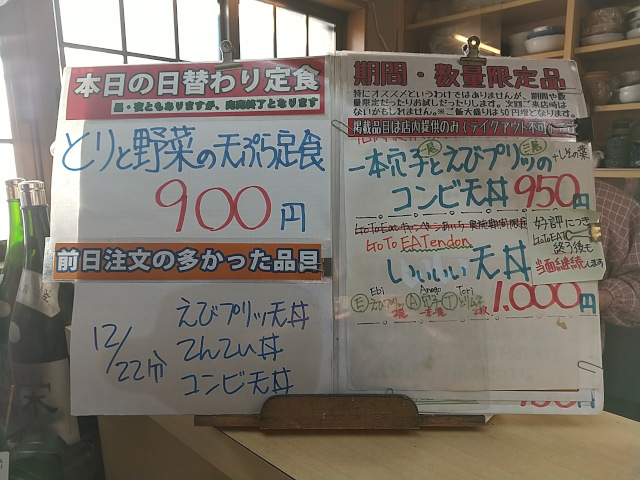 本日の日替わり定食
昼・夜ともありますが、完売終了となります
とりと野菜の天ぷら定食
900円
前日注文の多かった品目
12/22分
えびプリッ天丼
てんてい丼
コンビ天丼
期間・数量限定品
特にオススメというわけではありませんが、期間や数
量限定だったりお試しだったりします。次回ご来店時は
ないかもしれません。※ご飯大盛りは50円増となります。
掲載品目は店内提供のみ(テイクアウト不可)
一本穴子とえびプリッの
+しその葉
コンビ天丼 950円
GoTo EATendon
いいいい天丼
1,000円
Ebi Anago Tori
E えびプリッ A 穴子 T とりムネ
好評につき
GoToEAT
終了後も
当面継続します